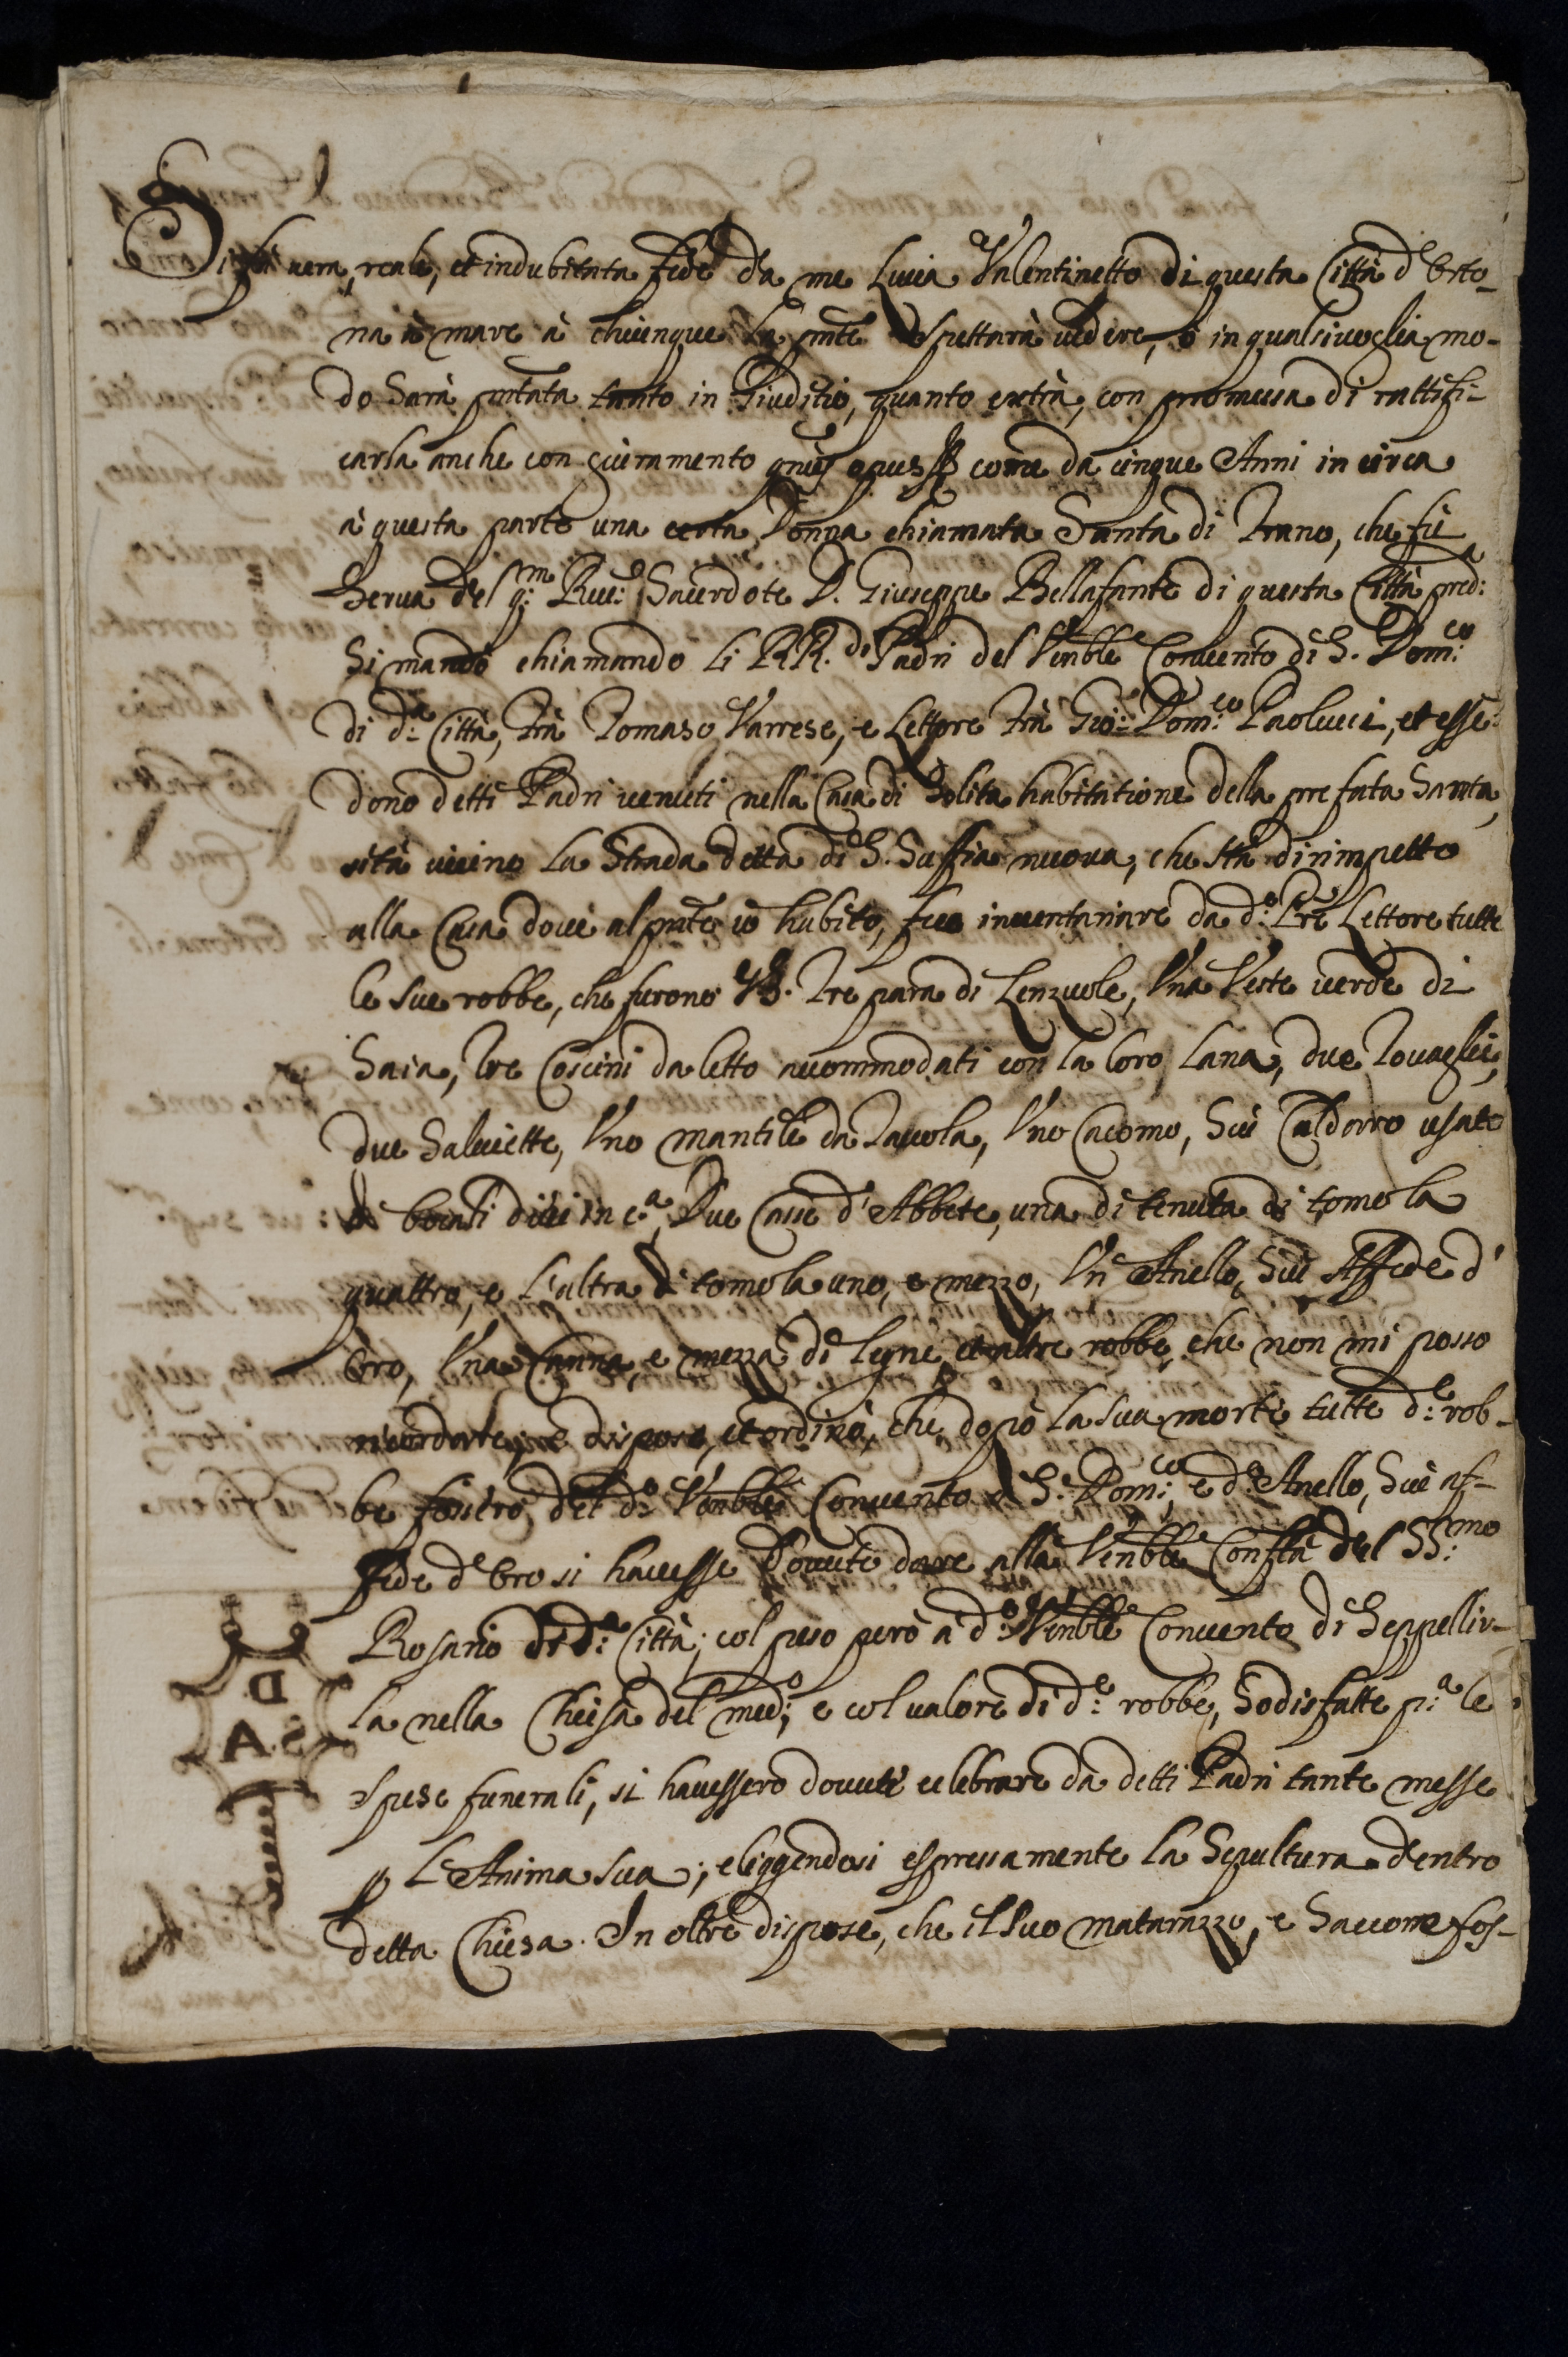 Si fà vera, reale, et indubitata fede da me Livia Valentinetto di questa Città d'Orto-
na à mare à chiunque la pn̄te spettarà vedere, ò in qualsivoglia mo-
do Sarà pn̄tata tanto in Giuditio, quanto extrà, con promessa di rattifi-
carla anche con giuramento opus come da cinque Anni in circa
à questa parte una certa Donna chiamata Santa di Trano, che fù
Serva del q:m Rev:do Sacerdote D. Giuseppe Bellafante di questa Città pred:a
Si mandò chiamando li RR.di Padri del Venble Convento di S. Dom:co
di d:a Città, frà Tomaso Varrese, e Lettore frà Gio: Dom:co Paolucci, et esse-
dono detti Padri venuti nella Casa di Solita habitatione della prefata Santa,
sità vicino la Strada detta di S. Suffia nuova, che stà dirimpetto
alla Casa dove al pn̄te io habito, fece inventariare da d:o Pre Lettore tutte
le sue robbe, che furono Tre para di Lenzuole, Una Veste verde di
Saia, tre Coscini da letto accommodati con la loro lana, due Tovaglie,
due Salviette, Uno mantile da Tavola, Uno Cacomo, Sive Caldaro usato
di bocali dieci in c:a, Due Casse d'Abbete, una di tenuta di tomola
quattro, e l'altra di tomola uno, e mezzo, Un Anello, Sive Affede d'
Oro, Una Canna, e mezza di legne, et altre robbe, che non mi posso
ricordare, e dispose, et ordinò, che dopò la sua morte tutte d:e rob-
be fossero del d:o Venble Convento di S. Dom:co, e d:o Anello, Sive af-
fede d'Oro si havesse dovuto dare alla Venble Confta del SS:mo
Rosario di d:a Città; col peso però à d:o Venble Convento di Seppellir-
la nella Chiesa del med:o, e col valore di d:e robbe, Sodisfatte p:a le
spese funerali, si havessero dovute celebrare da detti Padri tante messe
p l'Anima sua; eliggendosi espressamente la Sepultura dentro
detta Chiesa. In oltre dispose, che il suo matarazzo, e Saccone fos-